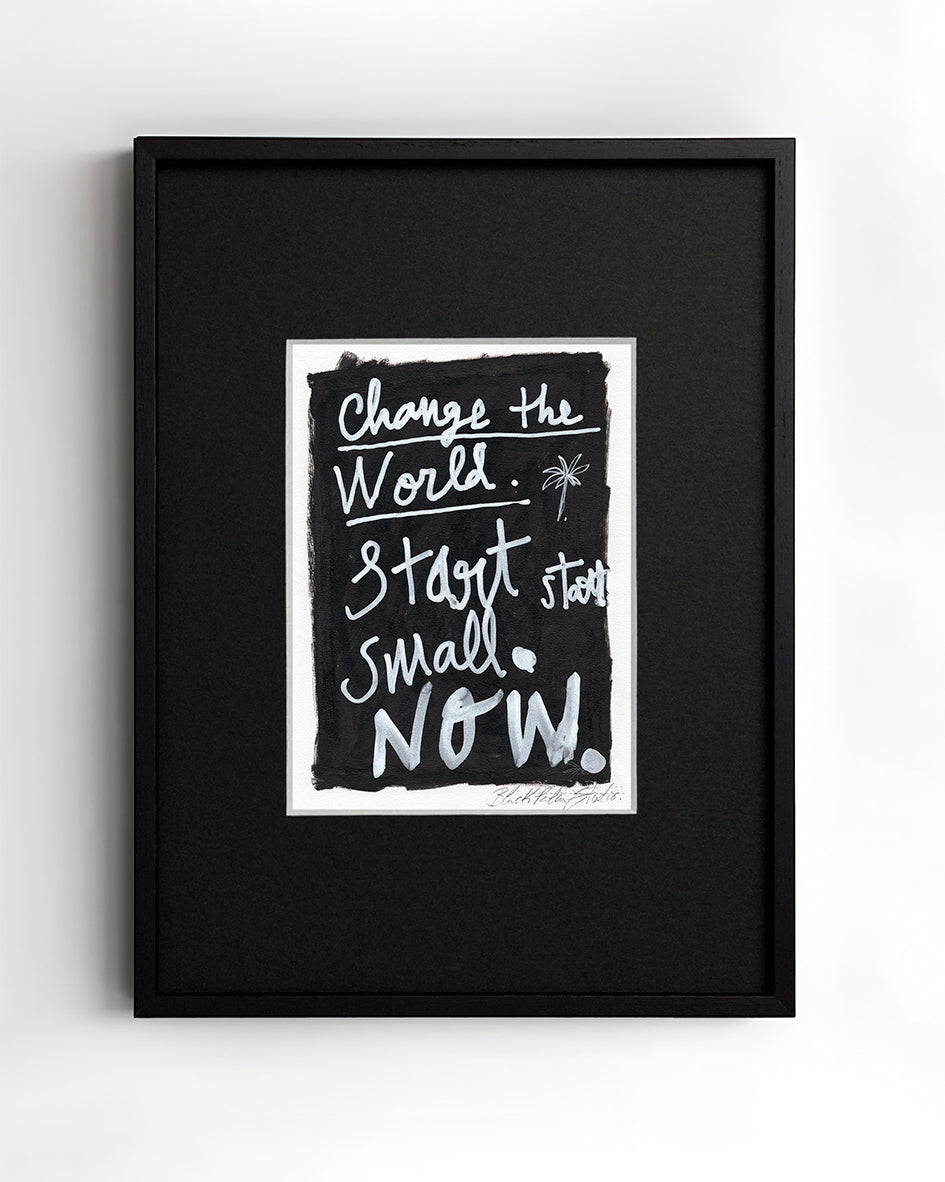 Change the
World.
Start start
small.
NOW.
Black Palm Studio.